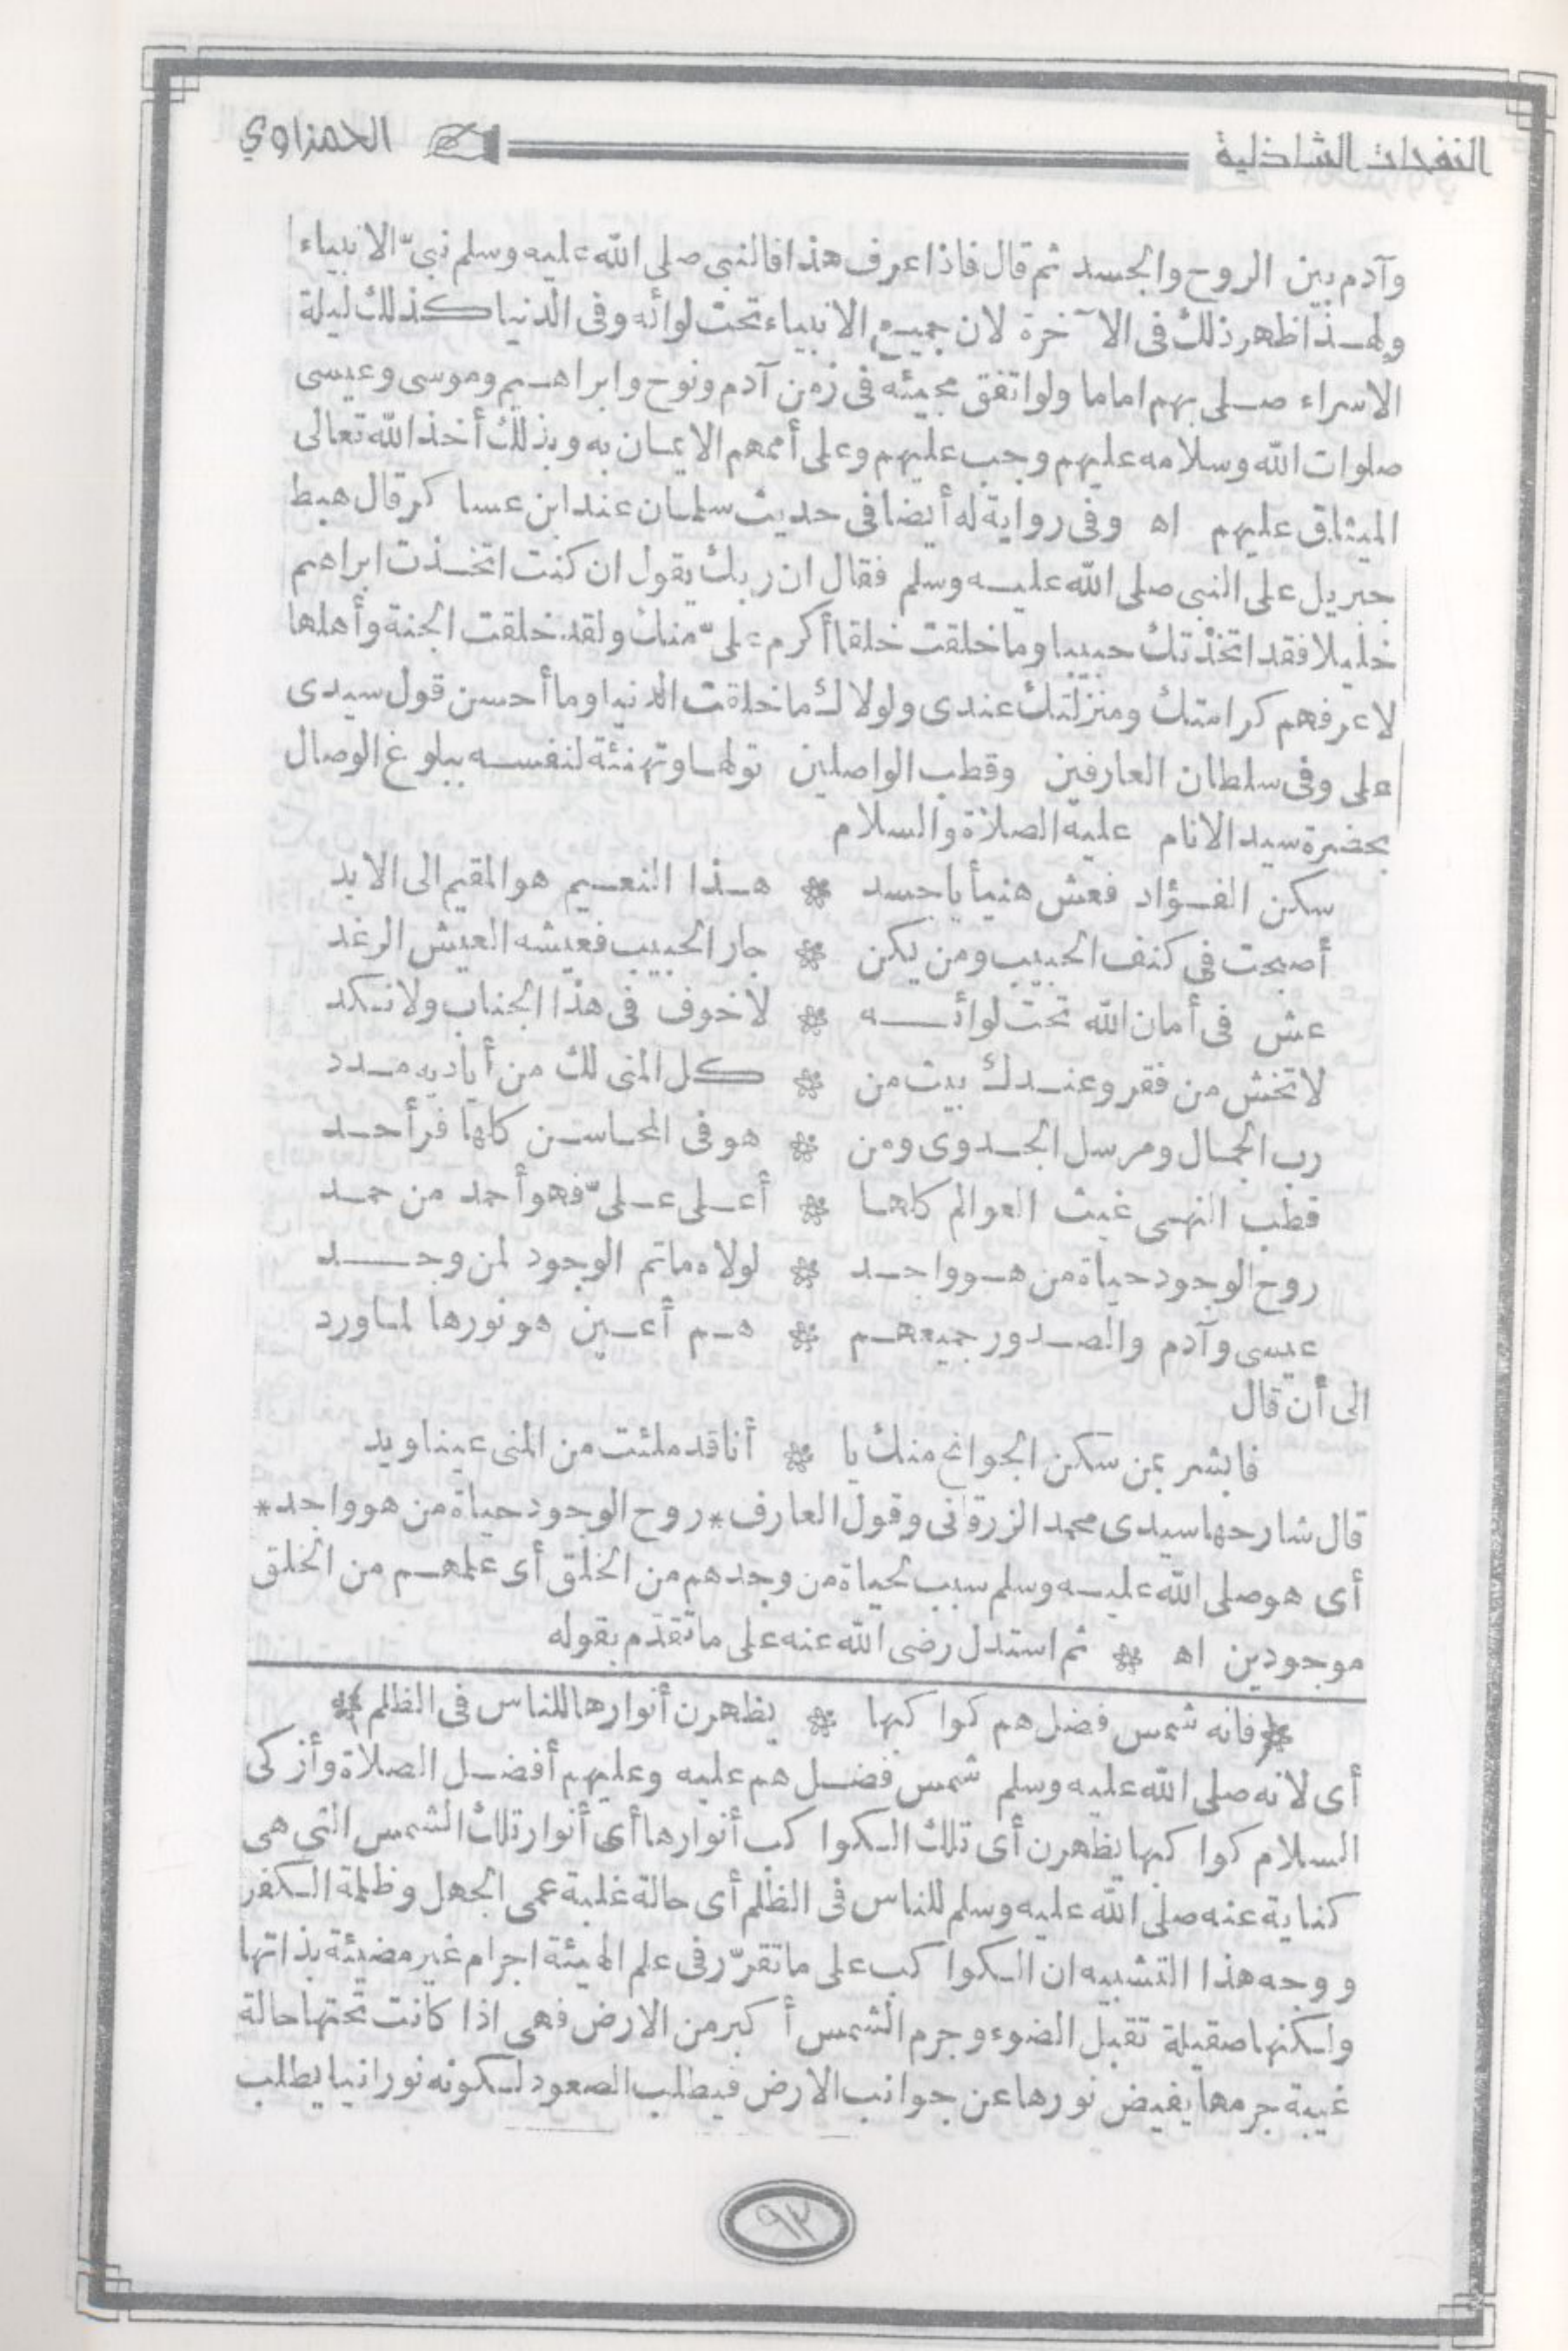 النفحات الشاذلية
الحمزاوي
وآدم بين الروح والجسد ثم قال فاذا عرف هذا فالنبى صلى الله عليه وسلم نبىّ الانبياء
ولهذا ظهر ذلك فى الآخرة لان جميع الانبياء تحت لوائه وفى الدنيا كذلك ليلة
الاسراء صلى بهم اماما ولو اتفق مجيئه فى زمن آدم ونوح وابراهيم وموسى وعيسى
صلوات الله وسلامه عليهم وجب عليهم وعلى أممهم الايمان به وبذلك أخذ الله تعالى
الميثاق عليهم اه وفى رواية له أيضا فى حديث سلمان عند ابن عساكر قال هبط
جبريل على النبى صلى الله عليه وسلم فقال ان ربك يقول ان كنت اتخذت ابراهيم
خليلا فقد اتخذتك حبيبا وما خلقت خلقا أكرم علىّ منك ولقد خلقت الجنة وأهلها
لاعرفهم كرامتك ومنزلتك عندى ولولاك ما خلقت الدنيا وما أحسن قول سيدى
على وفى سلطان العارفين وقطب الواصلين تولها وتهنئة لنفسه ببلوغ الوصال
بحضرة سيد الانام عليه الصلاة والسلام
سكن الفؤاد فعش هنيأ يا جسد * هذا النعيم هو المقيم الى الابد
أصبحت فى كنف الحبيب ومن يكن * جار الحبيب فعيشه العيش الرغد
عش فى أمان الله تحت لوائه * لا خوف فى هذا الجناب ولا نكد
لا تخش من فقر وعندك بيت من * كل المنى لك من أياديه مدد
رب الجمال ومرسل الجدوى ومن * هو فى المحاسن كلها فرد أحد
قطب النهى غيث العوالم كلها * أعلى علىّ فهو أحمد من حمد
روح الوجود حياة من هو واجد * لولاه ما تم الوجود لمن وجد
عيسى وآدم والصدور جميعهم * هم أعين هو نورها لما ورد
الى أن قال
فابشر بمن سكن الجوانح منك يا * أنا قد ملئت من المنى عينا ويد
قال شارحها سيدى محمد الزرقانى وقول العارف * روح الوجود حياة من هو واجد *
أى هو صلى الله عليه وسلم سبب لحياة من وجدهم من الخلق أى علمهم من الخلق
موجودين اه * ثم استدل رضى الله عنه على ما تقدّم بقوله
* فانه شمس فضل هم كواكبها * يظهرن أنوارها للناس فى الظلم *
أى لانه صلى الله عليه وسلم شمس فضل هم عليه وعليهم أفضل الصلاة وأزكى
السلام كواكبها يظهرن أى تلك الكواكب أنوارها أى أنوار تلك الشمس التى هى
كناية عنه صلى الله عليه وسلم للناس فى الظلم أى حالة غلبة عمى الجهل وظلمة الكفر
ووجه هذا التشبيه ان الكواكب على ما تقرّر فى علم الهيئة اجرام غير مضيئة بذاتها
ولكنها صقيلة تقبل الضوء وجرم الشمس أكبر من الارض فهى اذا كانت تحتها حالة
غيبة جرمها يفيض نورها عن جوانب الارض فيطلب الصعود لكونه نورانيا يطلب
٩٣